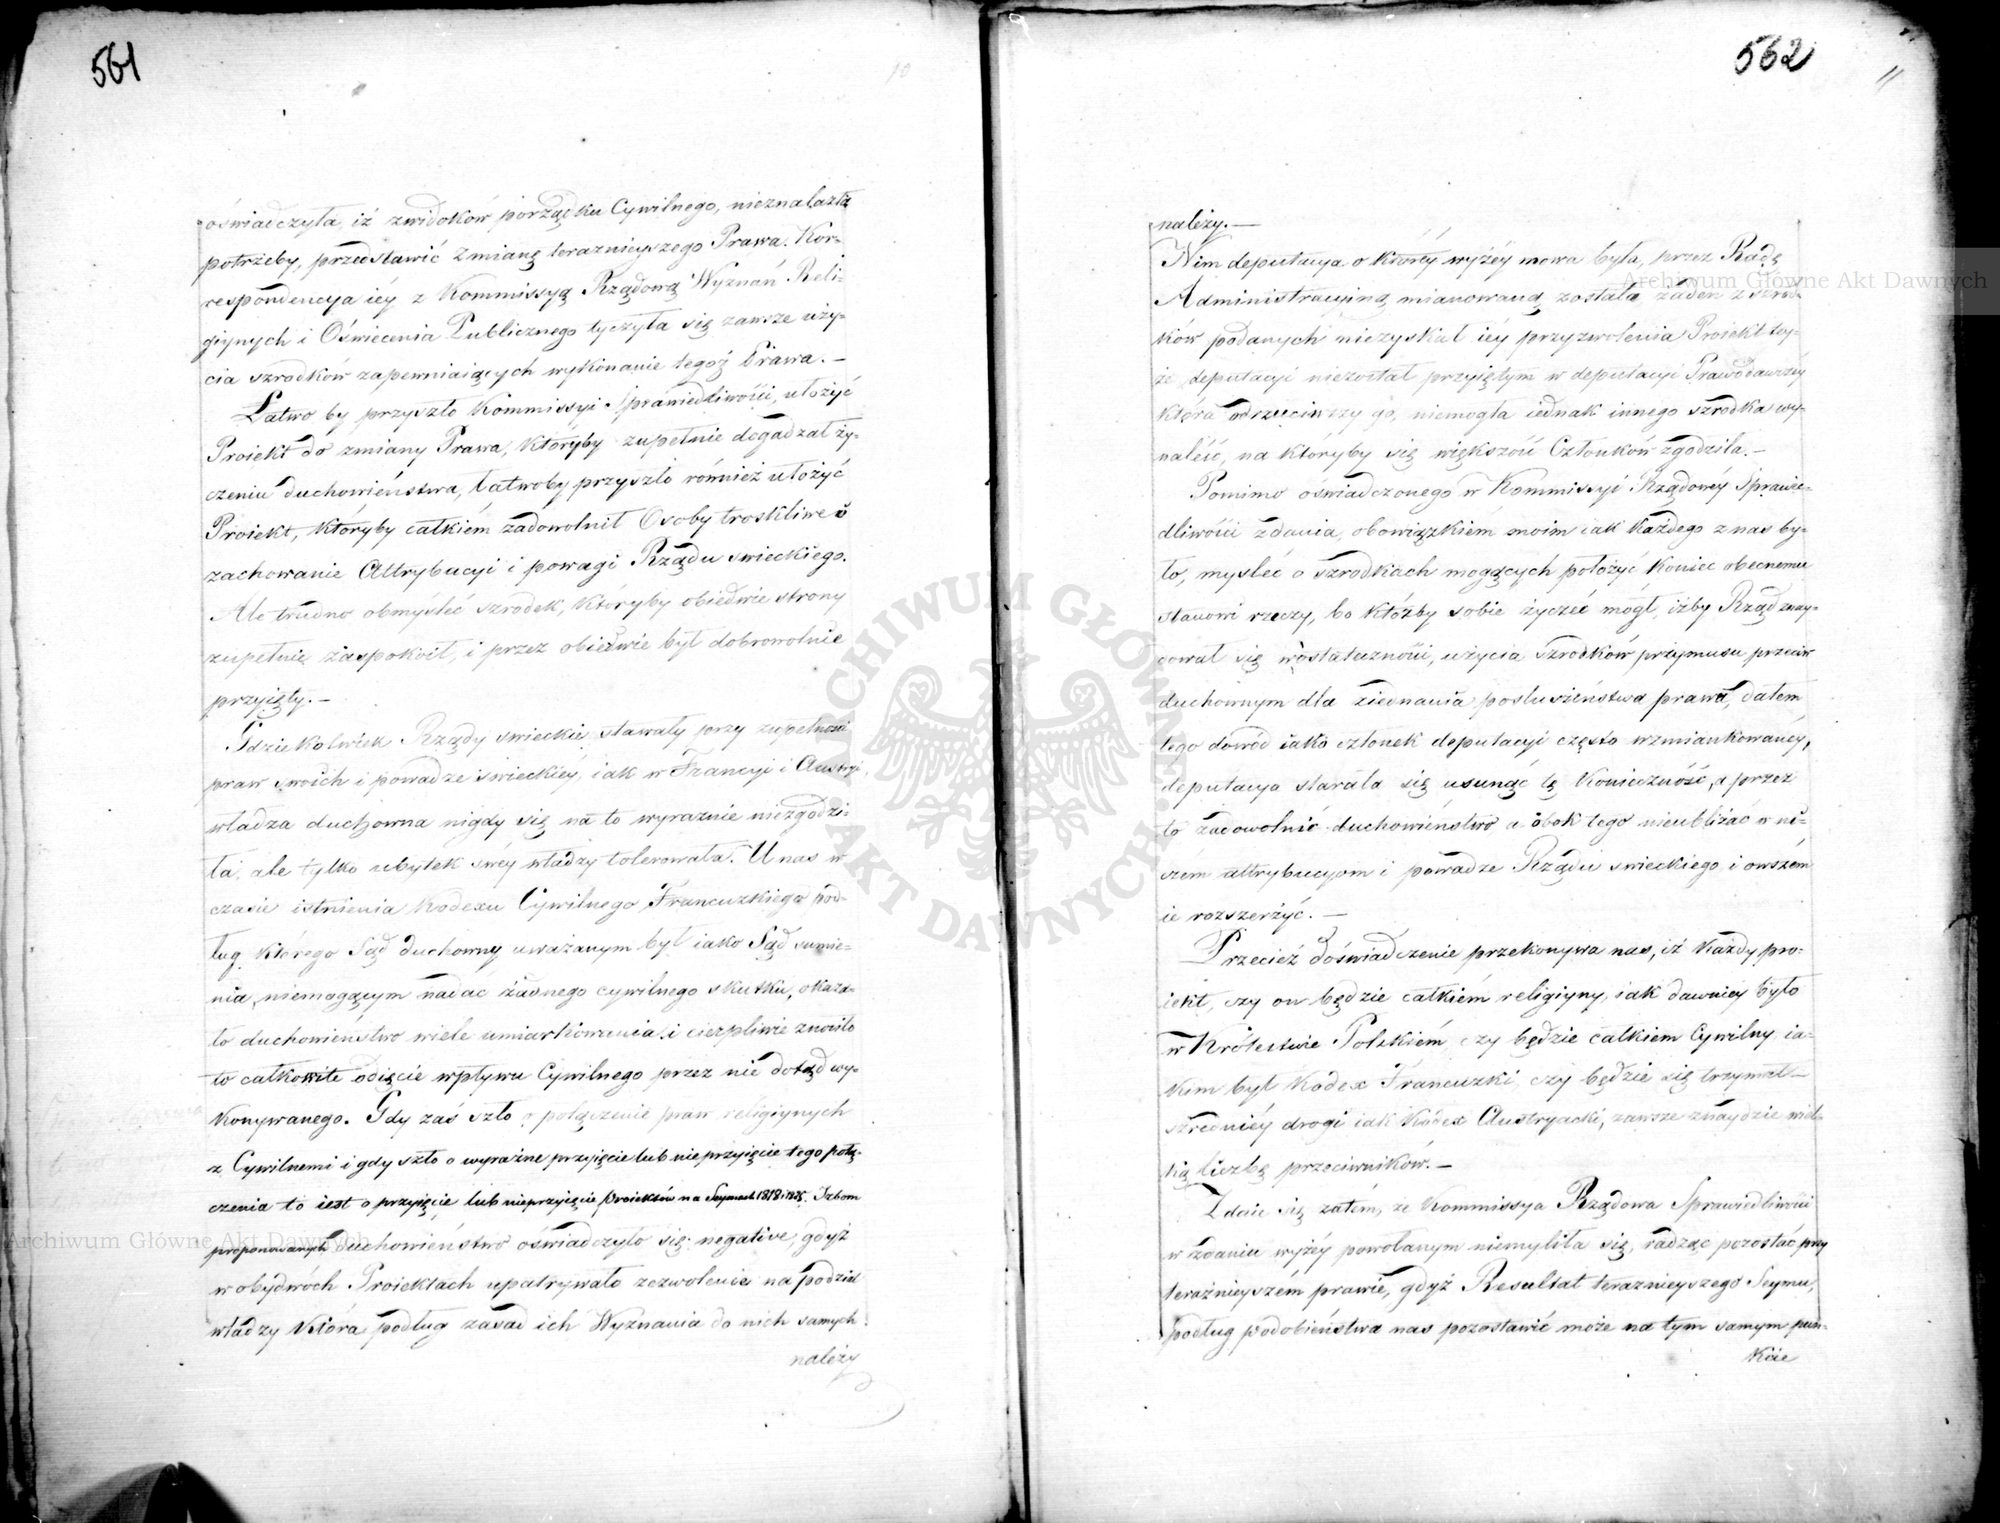 561
10
oświadczyła, iż zwidoków porządku Cywilnego, nieznalazła
potrzeby, przedstawić zmianę teraznieyszego Prawa. Kor-
respondencya iéy z Kommissyą Rządową Wyznań Reli-
giynych i Oświecenia Publicznego tyczyła się zawsze uży-
cia szrodków zapewniaiących wykonanie tegoż Prawa. —
Łatwo by przyszło Kommissyi Sprawiedliwości, ułożyć
Proiekt do zmiany Prawa, któryby zupełnie dogadzał ży-
czeniu duchowieństwa, łatwoby przyszło również ułożyć
Proiekt, któryby całkiém zadowolnił Osoby troskliwe o
zachowanie Attrybucyi i powagi Rządu swieckiego.
Ale trudno obmyśleć szrodek, któryby obiedwie strony
zupełnie zaspokoił, i przez obiedwie był dobrowolnie
przyięty. —
Gdziekolwiek Rządy swieckie stawały przy zupełności
praw swoich i powadze swieckiéy, iak w Francyi i Austryi,
władza duchowna nigdy się na to wyraznie niezgodzi-
ła, ale tylko ubytek swéy władzy tolerowała. U nas w
czasie istnienia Kodexu Cywilnego Francuzkiego pod-
ług którego Sąd duchowny uważanym był iako Sąd sumie-
nia, niemogącym nadac żadnego cywilnego skutku, okaza-
ło duchowieństwo wiele umiarkowania i cierpliwie znosiło
to całkowite odięcie wpływu Cywilnego przez nie dotąd wy-
konywanego. Gdy zaś szło o połączenie praw religiynych
z Cywilnemi i gdy szło o wyraźne przyięcie lub nieprzyięcie tego połą-
czenia to iest o przyięcie lub nieprzyięcie Proiektów na Seymach 1818 i 1825. Izbom
proponowanych duchowieństwo oświadczyło się negative, gdyż
w obydwóch Proiektach upatrywało zezwolenie na podział
władzy która podług zasad ich Wyznania do nich samych
należy
562
11
należy. —
Nim deputacya o któréy wyżéy mowa była, przez Radę
Administracyiną mianowaną została żaden z szrod-
ków podanych niezyskał iéy przyzwolenia Proiekt tey-
że deputacyi niezostał przyiętym w deputacyi Prawodawczéy
która odrzuciwszy go, niemogła iednak innego szrodka wy-
naléść, na któryby się większość Członków zgodziła. —
Pomimo oświadczonego w Kommissyi Rządowéy Sprawie-
dliwości zdania, obowiązkiem moim iak każdego z nas by-
ło, mysleć o szrodkach mogących położyć koniec obecnemu
stanowi rzeczy, bo któżby sobie życzeć mógł, iżby Rząd znay-
dował się w ostateczności, użycia szrodków przymusu przeciw
duchownym dla ziednania posłuszeństwa prawu, dałem
tego dowód iako członek deputacyi często wzmiankowanéy,
deputacya starała się usunąć tę konieczność, a przez
to zadowolnić duchowieństwo a obok tego nieubliżać w ni-
czem attrybucyom i powadze Rządu swieckiego i owszem
ie rozszerżyć. —
Przecież doświadczenie przekonywa nas, iż każdy pro-
iekt, czy on będzie całkiém religiyny, iak dawniey było
w Królestwie Polskiém, czy będzie całkiem Cywilny, ia-
kim był Kodex Francuzki, czy będzie się trzymał —
szredniéy drogi iak Kodex Austryacki, zawsze znaydzie wiel-
ką liczbę przeciwników. —
Zdaie się zatém, że Kommissya Rządowa Sprawiedliwości
w zdaniu wyżéy powołanym niemyliła się, radząc pozostać przy
teraźnieyszém prawie, gdyż Resultat teraznieyszego Seymu,
podług podobieństwa nas pozostawić może na tym samym pun-
kcie
Archiwum Główne Akt Dawnych
Archiwum Główne Akt Dawnych
ARCHIWUM GŁÓWNE AKT DAWNYCH